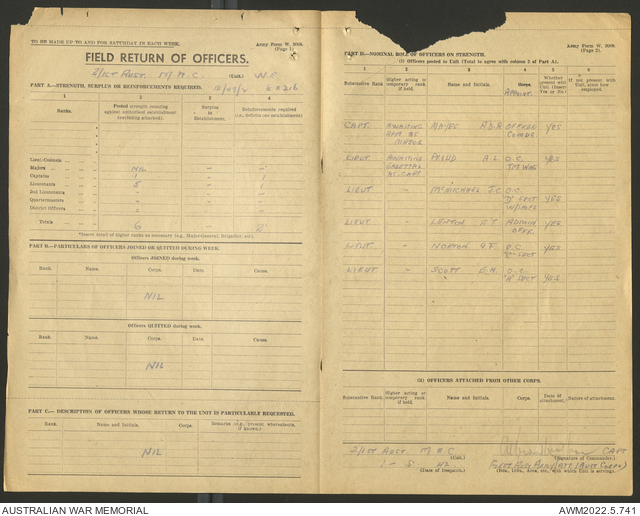 TO BE MADE UP TO AND FOR SATURDAY IN EACH WEEK.
Army Form W. 3008.
(Page 1)
FIELD RETURN OF OFFICERS.
2/1ST AUST. M.A.C. (Unit.)
PART A.—STRENGTH, SURPLUS OR REINFORCEMENTS REQUIRED.
1 2 3 4
Ranks.
Posted strength counting
against authorised establishment
(excluding attached).
Surplus
to
Establishment.
Reinforcements required
(i.e., deficits one establishment)
Lieut.-Colonels
Majors NIL
Captains 1 1
Lieutenants 5 1
2nd Lieutenants
Quartermasters
District Officers
Totals 6 2
*Insert detail of higher ranks as necessary (e.g., Major-General, Brigadier, etc.).
PART B.—PARTICULARS OF OFFICERS JOINED OR QUITTED DURING WEEK.
Officers JOINED during week.
Rank. Name. Corps. Date. Cause.
NIL
Officers QUITTED during week.
Rank. Name. Corps. Date. Cause.
NIL
PART C.—DESCRIPTION OF OFFICERS WHOSE RETURN TO THE UNIT IS PARTICULARLY REQUESTED.
Rank. Name and Initials. Corps. Remarks (e.g., present whereabouts,
if known.)
NIL
Army Form W. 3008.
(Page 2)
PART D.—NOMINAL ROLE OF OFFICERS ON STRENGTH.
(i) Officers posted to Unit (Total to agree with column 2 of Part A).
1 2 3 4 5 6
Substantive Rank.
Higher acting or
temporary rank
if held.
Name and Initials.
Corps.
APPOINT.
Whether
present with
Unit. (Insert
Yes or No.)
If not present with
Unit, state how
employed.
CAPT. AWAITING MAYES A.D.R. OFFR
APP. AS COMDG. YES
MAJOR
LIEUT AWAITING A.L. O.C. YES
GAZETTAL WKS
AS CAPT.
LIEUT - McMICHAEL J.C. O.C.
'D' SECT YES
LIEUT - LENTON A.T. ADMIN YES
OFFR.
LIEUT. - NORTON G.F. O.C. YES
SECT
LIEUT - SCOTT E.H. O.C.
'A' SECT YES
(ii) OFFICERS ATTACHED FROM OTHER CORPS.
Substantive Rank.
Higher acting or
temporary rank
if held.
Name and Initials.
Corps.
Date of
attachment.
Nature of attachment.
2/1ST AUST. M.A.C. (Unit.)
CAPT
(Signature of Commander.)
1 - 5 - 42
(Date of Despatch.)
(Bde., Div., Area, etc., with which Unit is serving).
AUSTRALIAN WAR MEMORIAL
AWM2022.5.741